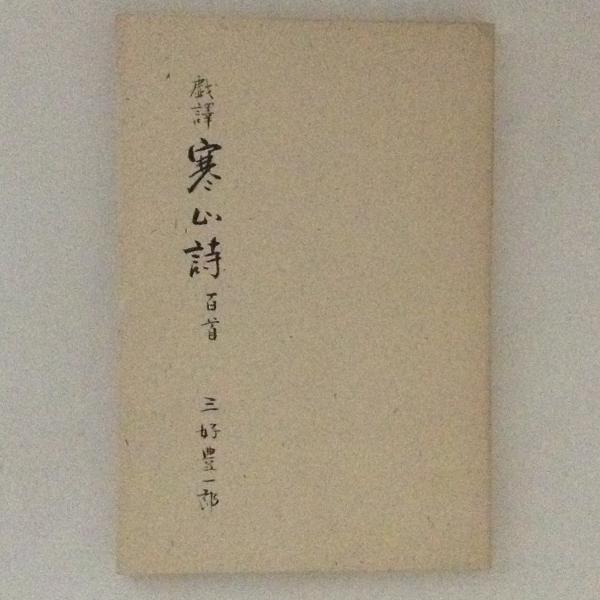 戯譯寒山詩百首 三好豊一郎